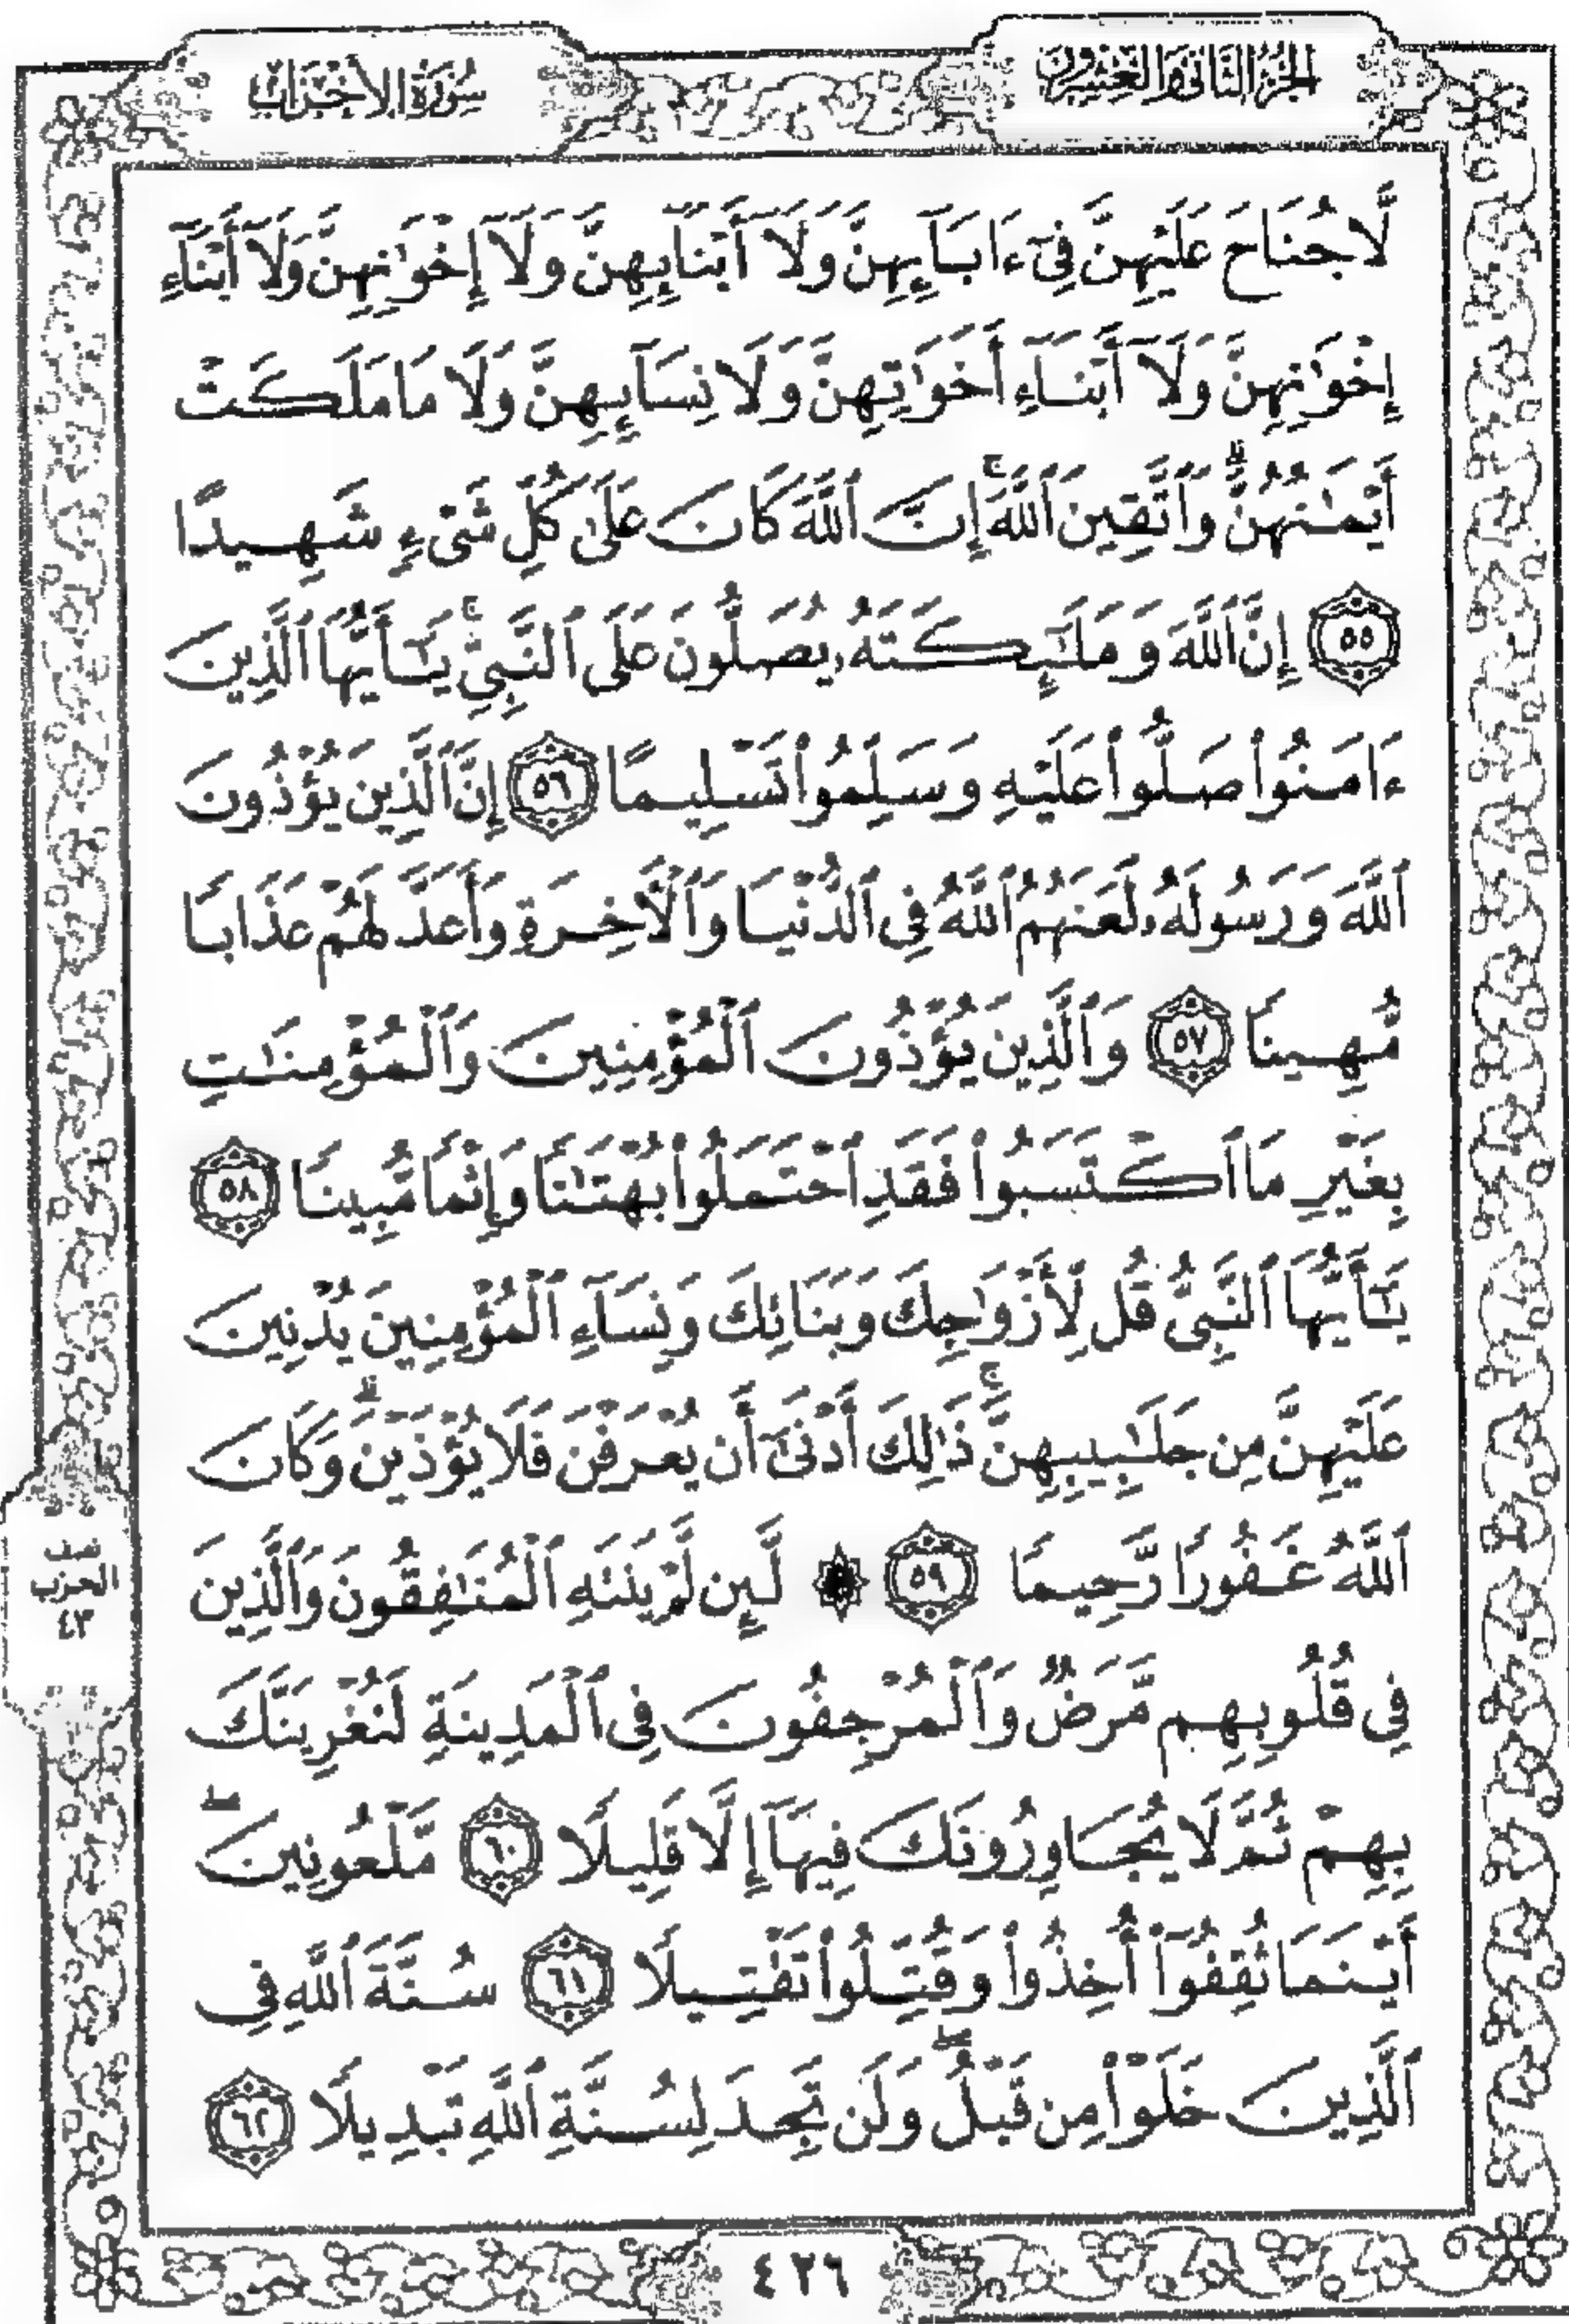 الجزء الثاني والعشرون
سورة الأحزاب
لَّا جُنَاحَ عَلَيْهِنَّ فِىٓ ءَابَآئِهِنَّ وَلَآ أَبْنَآئِهِنَّ وَلَآ إِخْوَٰنِهِنَّ وَلَآ أَبْنَآءِ
إِخْوَٰنِهِنَّ وَلَآ أَبْنَآءِ أَخَوَٰتِهِنَّ وَلَا نِسَآئِهِنَّ وَلَا مَا مَلَكَتْ
أَيْمَٰنُهُنَّ ۗ وَٱتَّقِينَ ٱللَّهَ ۚ إِنَّ ٱللَّهَ كَانَ عَلَىٰ كُلِّ شَىْءٍ شَهِيدًا
٥٥ إِنَّ ٱللَّهَ وَمَلَٰٓئِكَتَهُۥ يُصَلُّونَ عَلَى ٱلنَّبِىِّ ۚ يَٰٓأَيُّهَا ٱلَّذِينَ
ءَامَنُوا۟ صَلُّوا۟ عَلَيْهِ وَسَلِّمُوا۟ تَسْلِيمًا ٥٦ إِنَّ ٱلَّذِينَ يُؤْذُونَ
ٱللَّهَ وَرَسُولَهُۥ لَعَنَهُمُ ٱللَّهُ فِى ٱلدُّنْيَا وَٱلْأَخِرَةِ وَأَعَدَّ لَهُمْ عَذَابًا
مُّهِينًا ٥٧ وَٱلَّذِينَ يُؤْذُونَ ٱلْمُؤْمِنِينَ وَٱلْمُؤْمِنَٰتِ
بِغَيْرِ مَا ٱكْتَسَبُوا۟ فَقَدِ ٱحْتَمَلُوا۟ بُهْتَٰنًا وَإِثْمًا مُّبِينًا ٥٨
يَٰٓأَيُّهَا ٱلنَّبِىُّ قُل لِّأَزْوَٰجِكَ وَبَنَاتِكَ وَنِسَآءِ ٱلْمُؤْمِنِينَ يُدْنِينَ
عَلَيْهِنَّ مِن جَلَٰبِيبِهِنَّ ۚ ذَٰلِكَ أَدْنَىٰٓ أَن يُعْرَفْنَ فَلَا يُؤْذَيْنَ ۗ وَكَانَ
ٱللَّهُ غَفُورًا رَّحِيمًا ٥٩ ۞ لَّئِن لَّمْ يَنتَهِ ٱلْمُنَٰفِقُونَ وَٱلَّذِينَ
فِى قُلُوبِهِم مَّرَضٌ وَٱلْمُرْجِفُونَ فِى ٱلْمَدِينَةِ لَنُغْرِيَنَّكَ
بِهِمْ ثُمَّ لَا يُجَاوِرُونَكَ فِيهَآ إِلَّا قَلِيلًا ٦٠ مَّلْعُونِينَ ۖ
أَيْنَمَا ثُقِفُوٓا۟ أُخِذُوا۟ وَقُتِّلُوا۟ تَقْتِيلًا ٦١ سُنَّةَ ٱللَّهِ فِى
ٱلَّذِينَ خَلَوْا۟ مِن قَبْلُ ۖ وَلَن تَجِدَ لِسُنَّةِ ٱللَّهِ تَبْدِيلًا ٦٢
نصف
الحزب
٤٣
٤٢٦